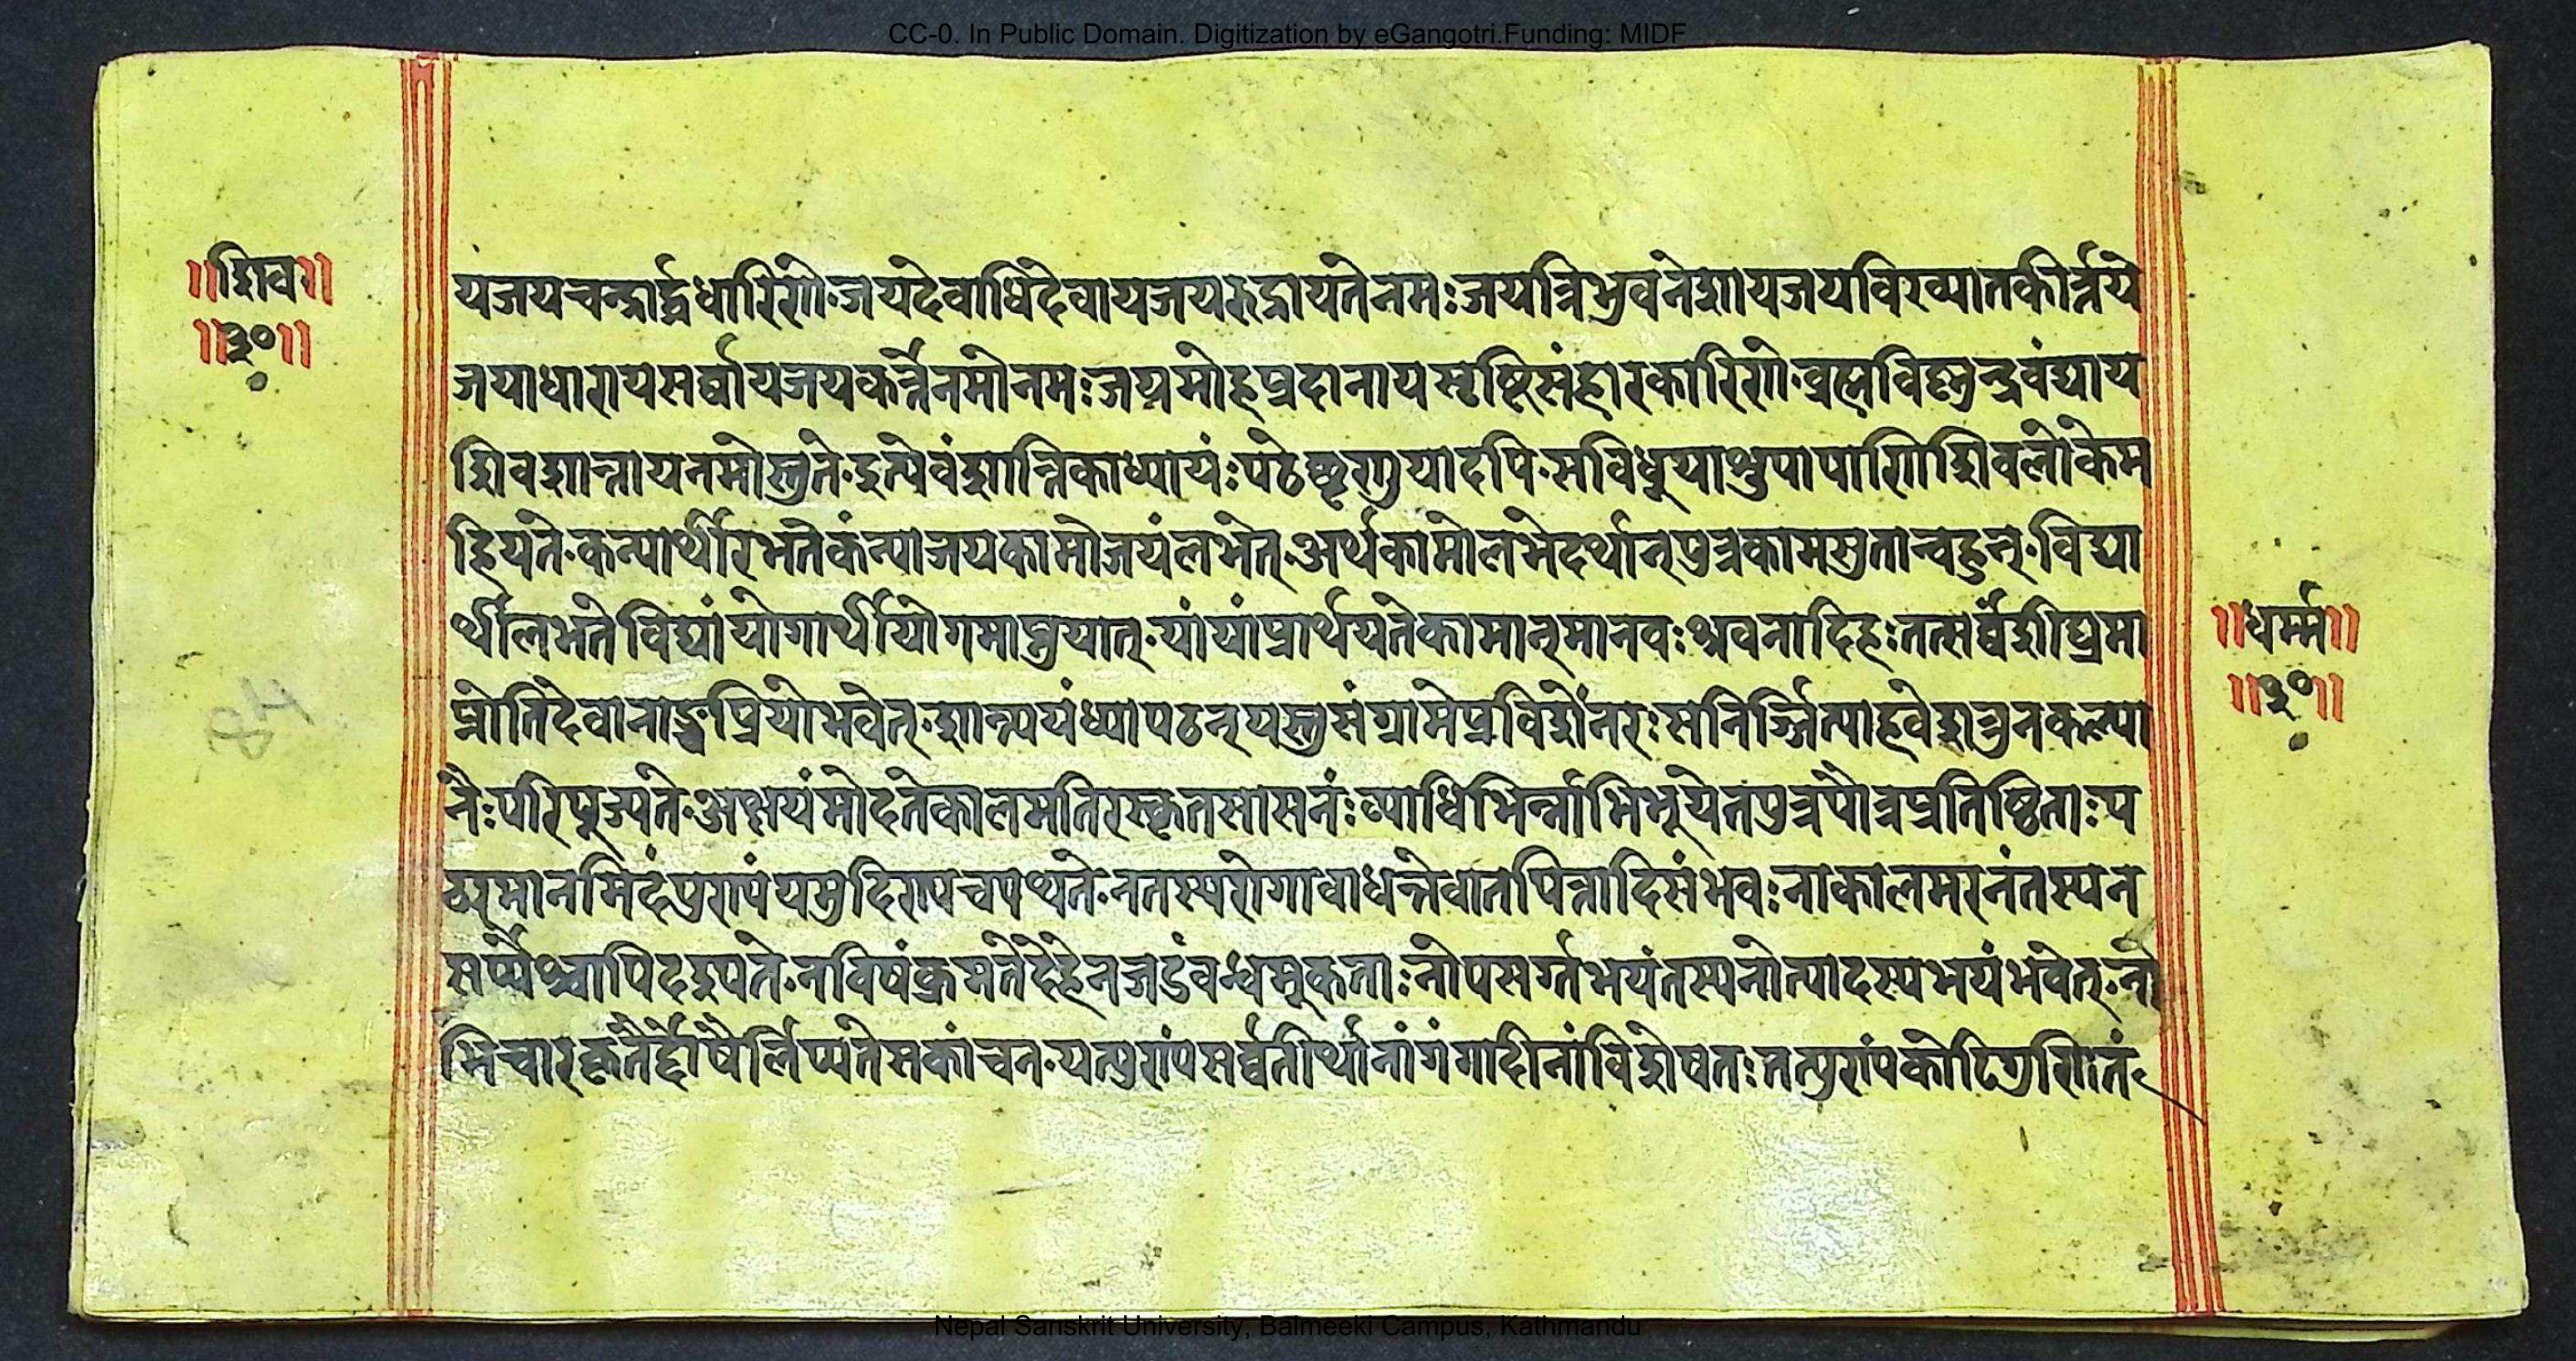 CC-0. In Public Domain. Digitization by eGangotri.Funding: MIDF
॥शिव॥
॥३०॥
यजयचन्द्रार्द्धधारिणे.जयदेवाधिदेवायजयरुद्रायतेनमः जयत्रिभुवनेशायजयविख्यातकीर्त्तये
जयाधारायसर्वायजयकर्त्त्रेनमोनमः जयमोहप्रदानायसृष्टिसंहारकारिणे.ब्रह्मविष्ण्विन्द्रवंद्याय
शिवशान्तायनमोस्तुते.इत्येवंशान्तिकाध्यायंः पठेच्छृणुयादपि.सविधूयाशुपापाणिशिवलोकेम
हियते.कन्यार्थीरभतेकंन्याजयकामोजयंलभेत्.अर्थकामोलभेदर्थान्पुत्रकामसुतान्वहुन्.विद्या
र्थीलभतेविद्यांयोगार्थीयोगमाप्नुयात्.यांयांप्रार्थयतेकामान्मानवः श्रवनादिहः तत्सर्वंशीघ्रमा
प्नोतिदेवानाञ्चप्रियोभवेत्.शान्त्ययंध्यापठन्यस्तुसंग्रामेप्रविशेंनरः सनिर्ज्जित्याहवेशत्रुनकल्या
नैः परिपूज्यते.अक्षयंमोदतेकालमतिरस्कृतसासनंः व्याधिभिर्न्नाभिभूयेतपुत्रपौत्रप्रतिष्ठिताः प
नतस्यरोगावाधन्तेवातपित्तादिसंभवः नाकालमरनंतस्यन
सर्प्पैश्चापिददृपते.नविषंक्रमतेदेहेनजडंवन्धमूकताः नोपसर्ग्गभयंतस्यनोत्पादस्यभयंभवेत्.नो
भिचारकृतैर्द्दोषैर्लिप्यतेसकांचन.यत्पुरांपसर्व्वतीर्थानांगंगादीनांविशेषतः तत्पुरांपकोटिगुणितं
॥धर्म्म॥
॥३०॥
Nepal Sanskrit University, Balmeeki Campus, Kathmandu